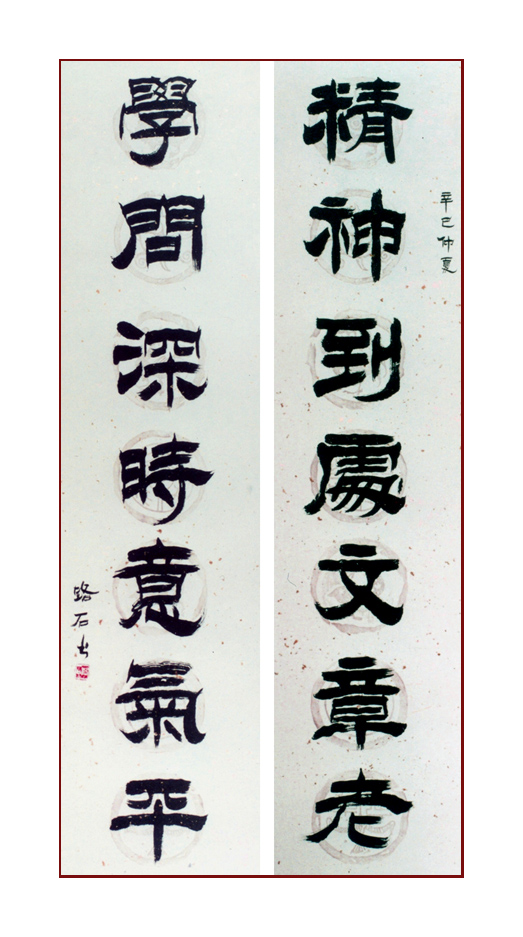 辛巳仲夏
精神到處文章老
學問深時意氣平
路石书